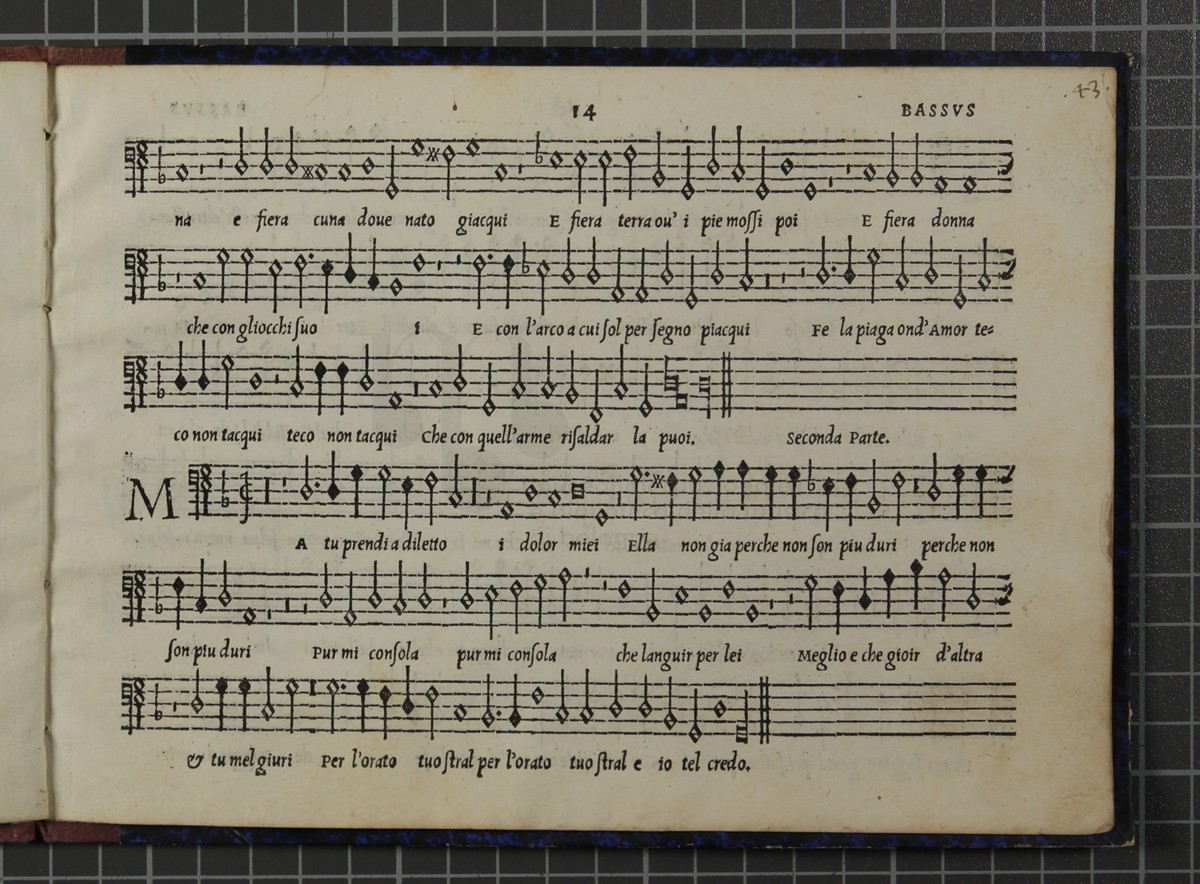 43
14 BASSVS
na e fiera cuna doue nato giacqui E fiera terra ou' i pie moſſi poi E fiera donna
che con gliocchi ſuo i E con l'arco a cui ſol per ſegno piacqui Fe la piaga ond'Amor te=
co non tacqui teco non tacqui Che con quell'arme riſaldar la puoi. Seconda Parte.
M
A tu prendi a diletto i dolor miei Ella non gia perche non ſon piu duri perche non
ſon piu duri Pur mi conſola pur mi conſola che languir per lei Meglio e che gioir d'altra
& tu mel giuri Per l'orato tuo ſtral per l'orato tuo ſtral e io tel credo.